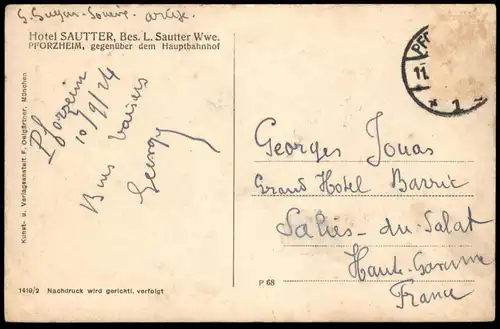 Hotel SAUTTER, Bes. L. Sautter Wwe.
PFORZHEIM, gegenüber dem Hauptbahnhof
Pforzeim
10/9/24
Bons baisers
Georgy
Kunst- u. Verlagsanstalt F. Oelgärtner, München
1419/2 Nachdruck wird gerichtl. verfolgt
P 68
PF
11.
* 1
Georges Jonas
Grand Hotel
Salies-du-Salat
Haute-Garonne
France